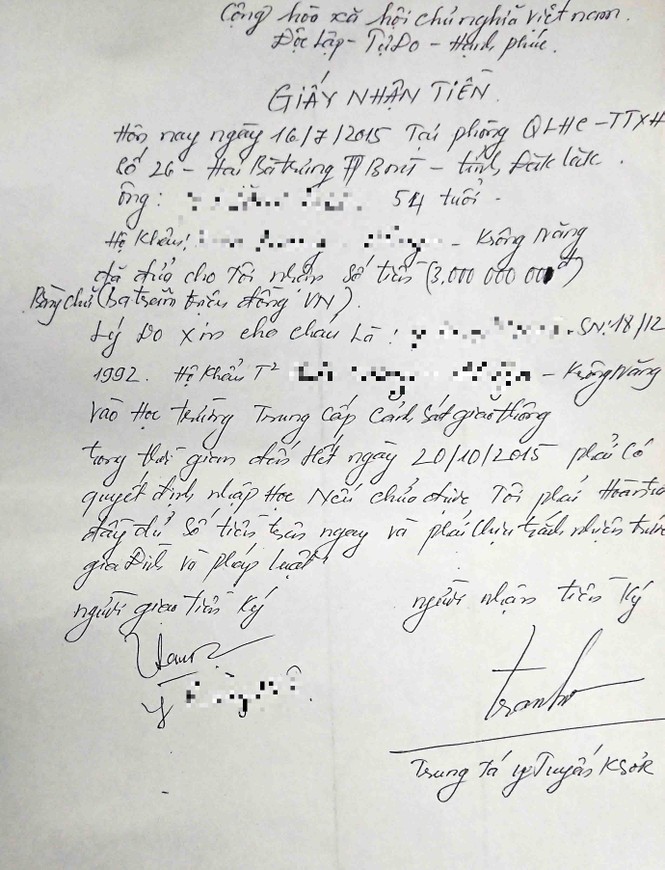 Cộng hòa xã hội chủ nghĩa việt nam.
Độc Lập - Tự Do - Hạnh phúc.
GIẤY NHẬN TIỀN.
Hôm nay ngày 16/7/2015 Tại phòng QLHC - TTXH
Số 26 - Hai Bà trưng - tỉnh Đăk lăk.
Ông: 54 tuổi -
Hộ khẩu: - Krông Năng
đã đưa cho Tôi nhận số tiền (3.000 000 000đ)
Bằng chữ (ba trăm triệu đồng VN).
Lý Do xin cho cháu Là: SN: 18/12
1992. Hộ khẩu T² - Krông Năng
vào Học trường Trung cấp cảnh sát giao thông
trong thời gian đến Hết ngày 20/10/2015 phải có
quyết định nhập Học Nếu chưa được Tôi phải Hoàn trả
đầy đủ số tiền trên ngay và phải chịu trách nhiệm trước
gia Đình và pháp luật
người giao tiền Ký
người nhận tiền Ký
Y
Trung tá y Tuyến KSƠR